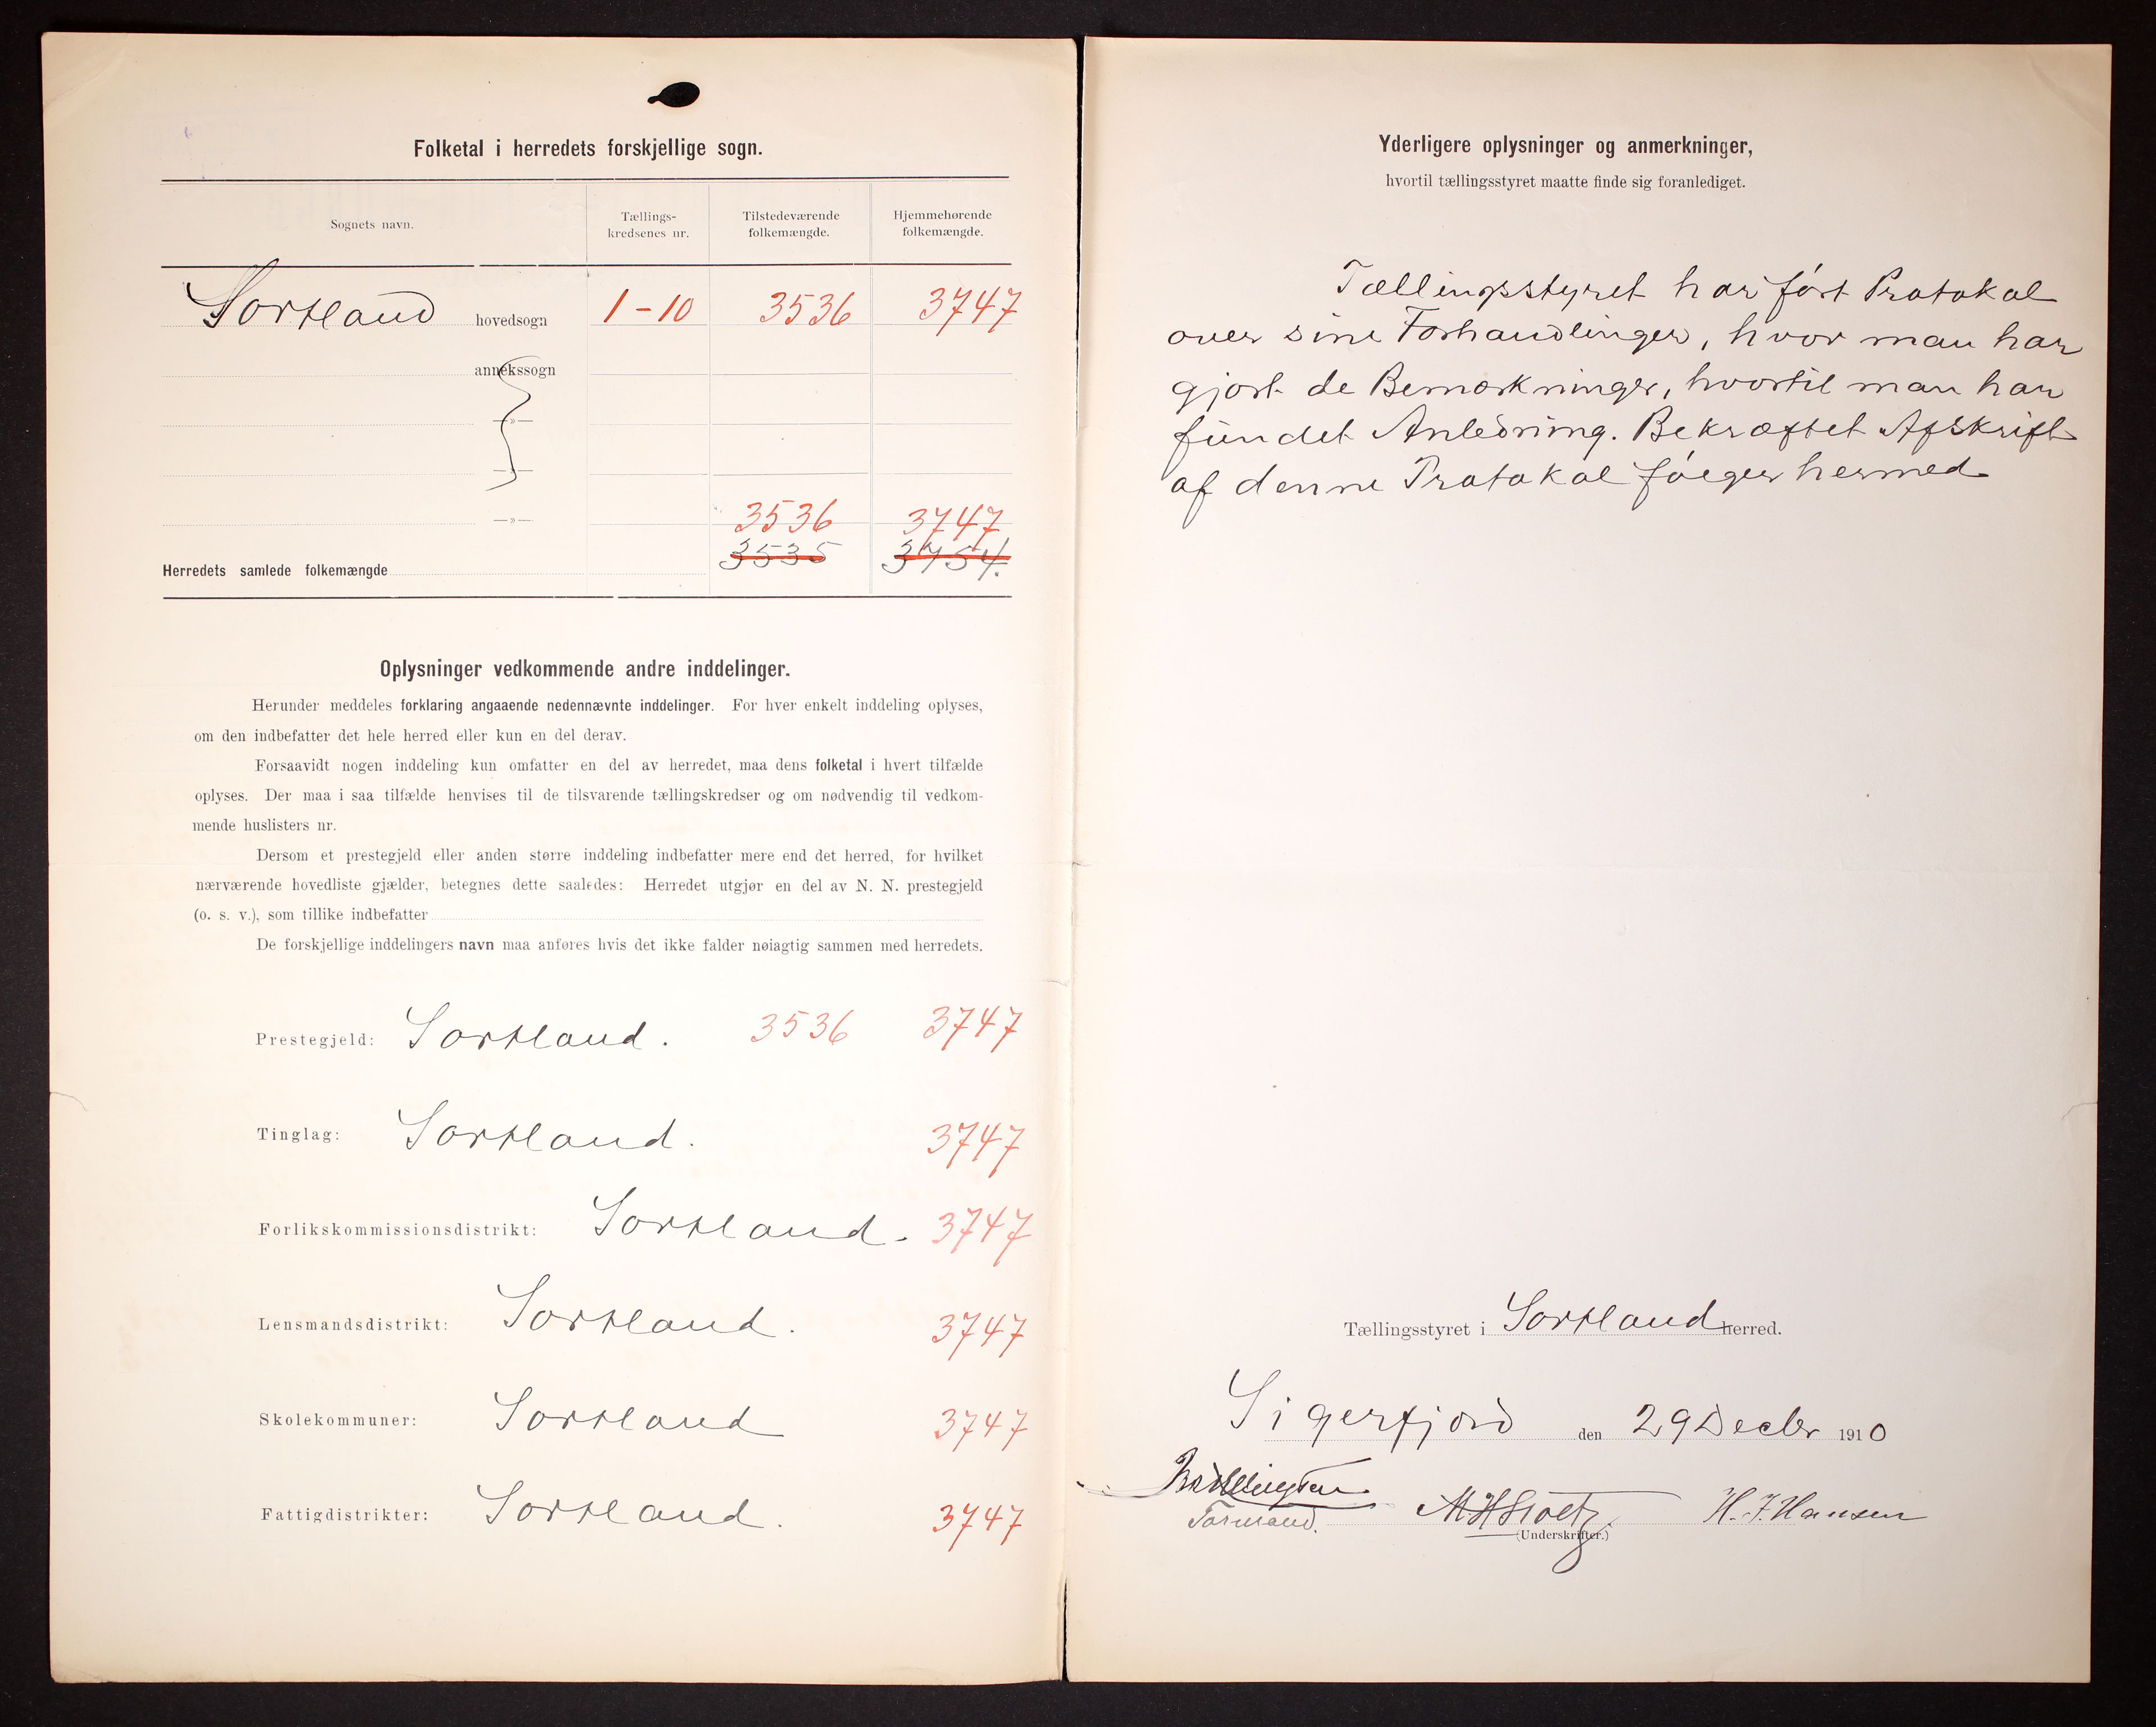 Folketal i herredets forskjellige sogn.
Sognets navn.
Tællings-
kredsenes nr.
Tilstedeværende
folkemængde.
Hjemmehørende
folkemængde.
Sortland hovedsogn 1-10 3536 3747
annekssogn
—»—
—»—
—»— 3536 3747
Herredets samlede folkemængde 3535 3754.
Oplysninger vedkommende andre inddelinger.
Herunder meddeles forklaring angaaende nedennævnte inddelinger. For hver enkelt inddeling oplyses,
om den indbefatter det hele herred eller kun en del derav.
Forsaavidt nogen inddeling kun omfatter en del av herredet, maa dens folketal i hvert tilfælde
oplyses. Der maa i saa tilfælde henvises til de tilsvarende tællingskredser og om nødvendig til vedkom-
mende huslisters nr.
Dersom et prestegjeld eller anden større inddeling indbefatter mere end det herred, for hvilket
nærværende hovedliste gjælder, betegnes dette saaledes: Herredet utgjør en del av N. N. prestegjeld
(o. s. v.), som tillike indbefatter
De forskjellige inddelingers navn maa anføres hvis det ikke falder nøiagtig sammen med herredets.
Prestegjeld: Sortland. 3536 3747
Tinglag: Sortland. 3747
Forlikskommissionsdistrikt: Sortland. 3747
Lensmandsdistrikt: Sortland. 3747
Skolekommuner: Sortland 3747
Fattigdistrikter: Sortland. 3747
Yderligere oplysninger og anmerkninger,
hvortil tællingsstyret maatte finde sig foranlediget.
Tællingsstyret har ført Protokol
over sine Forhandlinger, hvor man har
gjort de Bemærkninger, hvortil man har
fundet Anledning. Bekræftet Afskrift
af denne Protokol følger hermed
Tællingsstyret i Sortland herred.
Sigerfjord den 29 Decbr 1910
Formand. H. J. Hansen
(Underskrifter.)